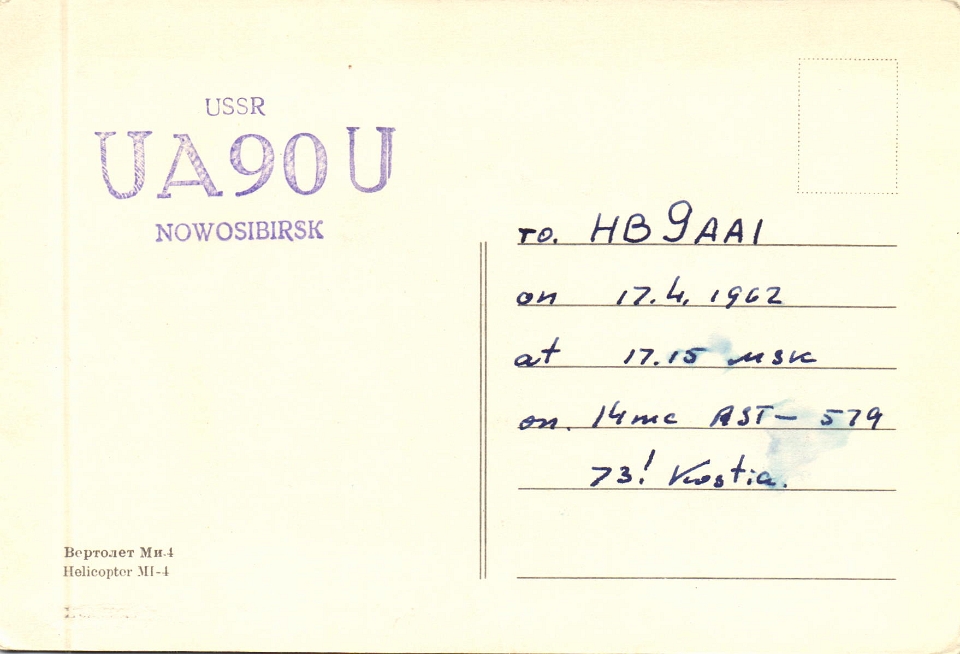 USSR
UA9OU
NOWOSIBIRSK
TO. HB9AAI
on 17.4. 1962
at 17.15 MSK
on. 14mc RST- 579
73! Kostia.
Вертолет Ми-4
Helicopter MI-4